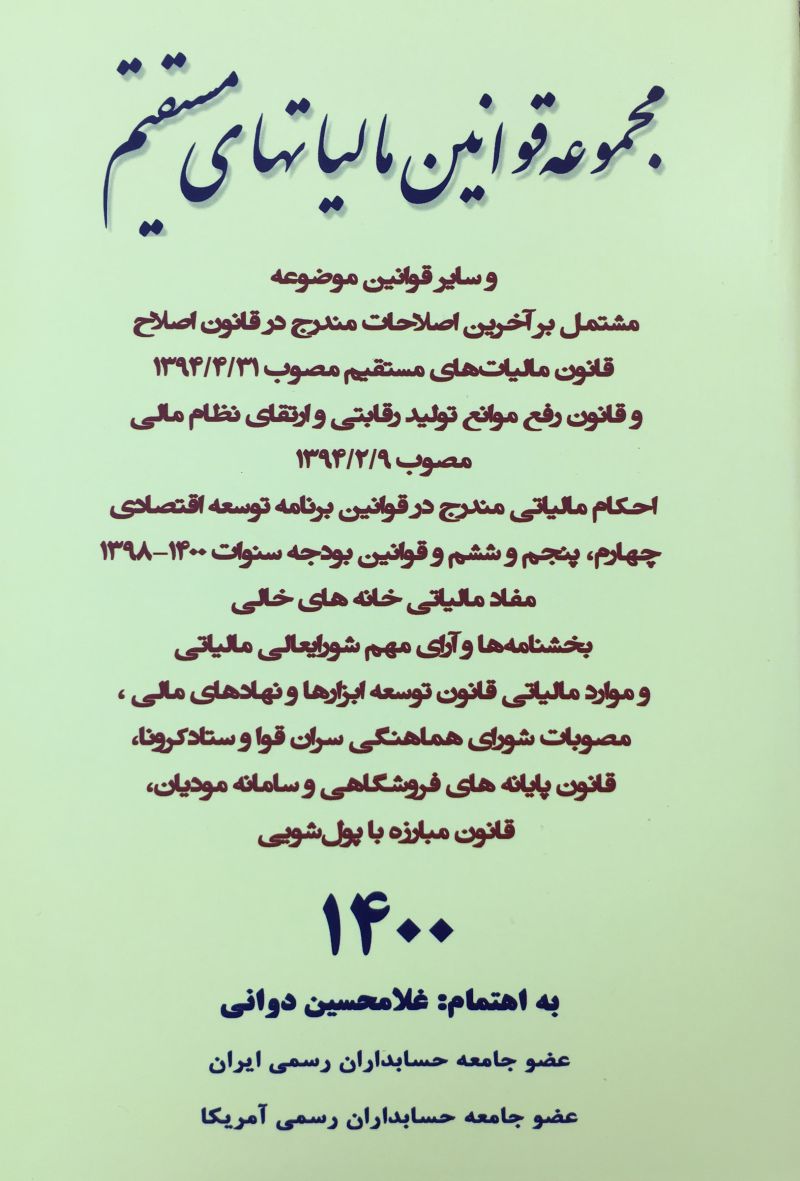 مجموعه قوانین مالیاتهای مستقیم
و سایر قوانین موضوعه
مشتمل بر آخرین اصلاحات مندرج در قانون اصلاح
قانون مالیات‌های مستقیم مصوب ۱۳۹۴/۴/۳۱
و قانون رفع موانع تولید رقابتی و ارتقای نظام مالی
مصوب ۱۳۹۴/۲/۹
احکام مالیاتی مندرج در قوانین برنامه توسعه اقتصادی
چهارم، پنجم و ششم و قوانین بودجه سنوات ۱۴۰۰-۱۳۹۸
مفاد مالیاتی خانه های خالی
بخشنامه‌ها و آرای مهم شورایعالی مالیاتی
و موارد مالیاتی قانون توسعه ابزارها و نهادهای مالی ،
مصوبات شورای هماهنگی سران قوا و ستاد کرونا،
قانون پایانه های فروشگاهی و سامانه مودیان،
قانون مبارزه با پول‌شویی
۱۴۰۰
به اهتمام: غلامحسین دوانی
عضو جامعه حسابداران رسمی ایران
عضو جامعه حسابداران رسمی آمریکا